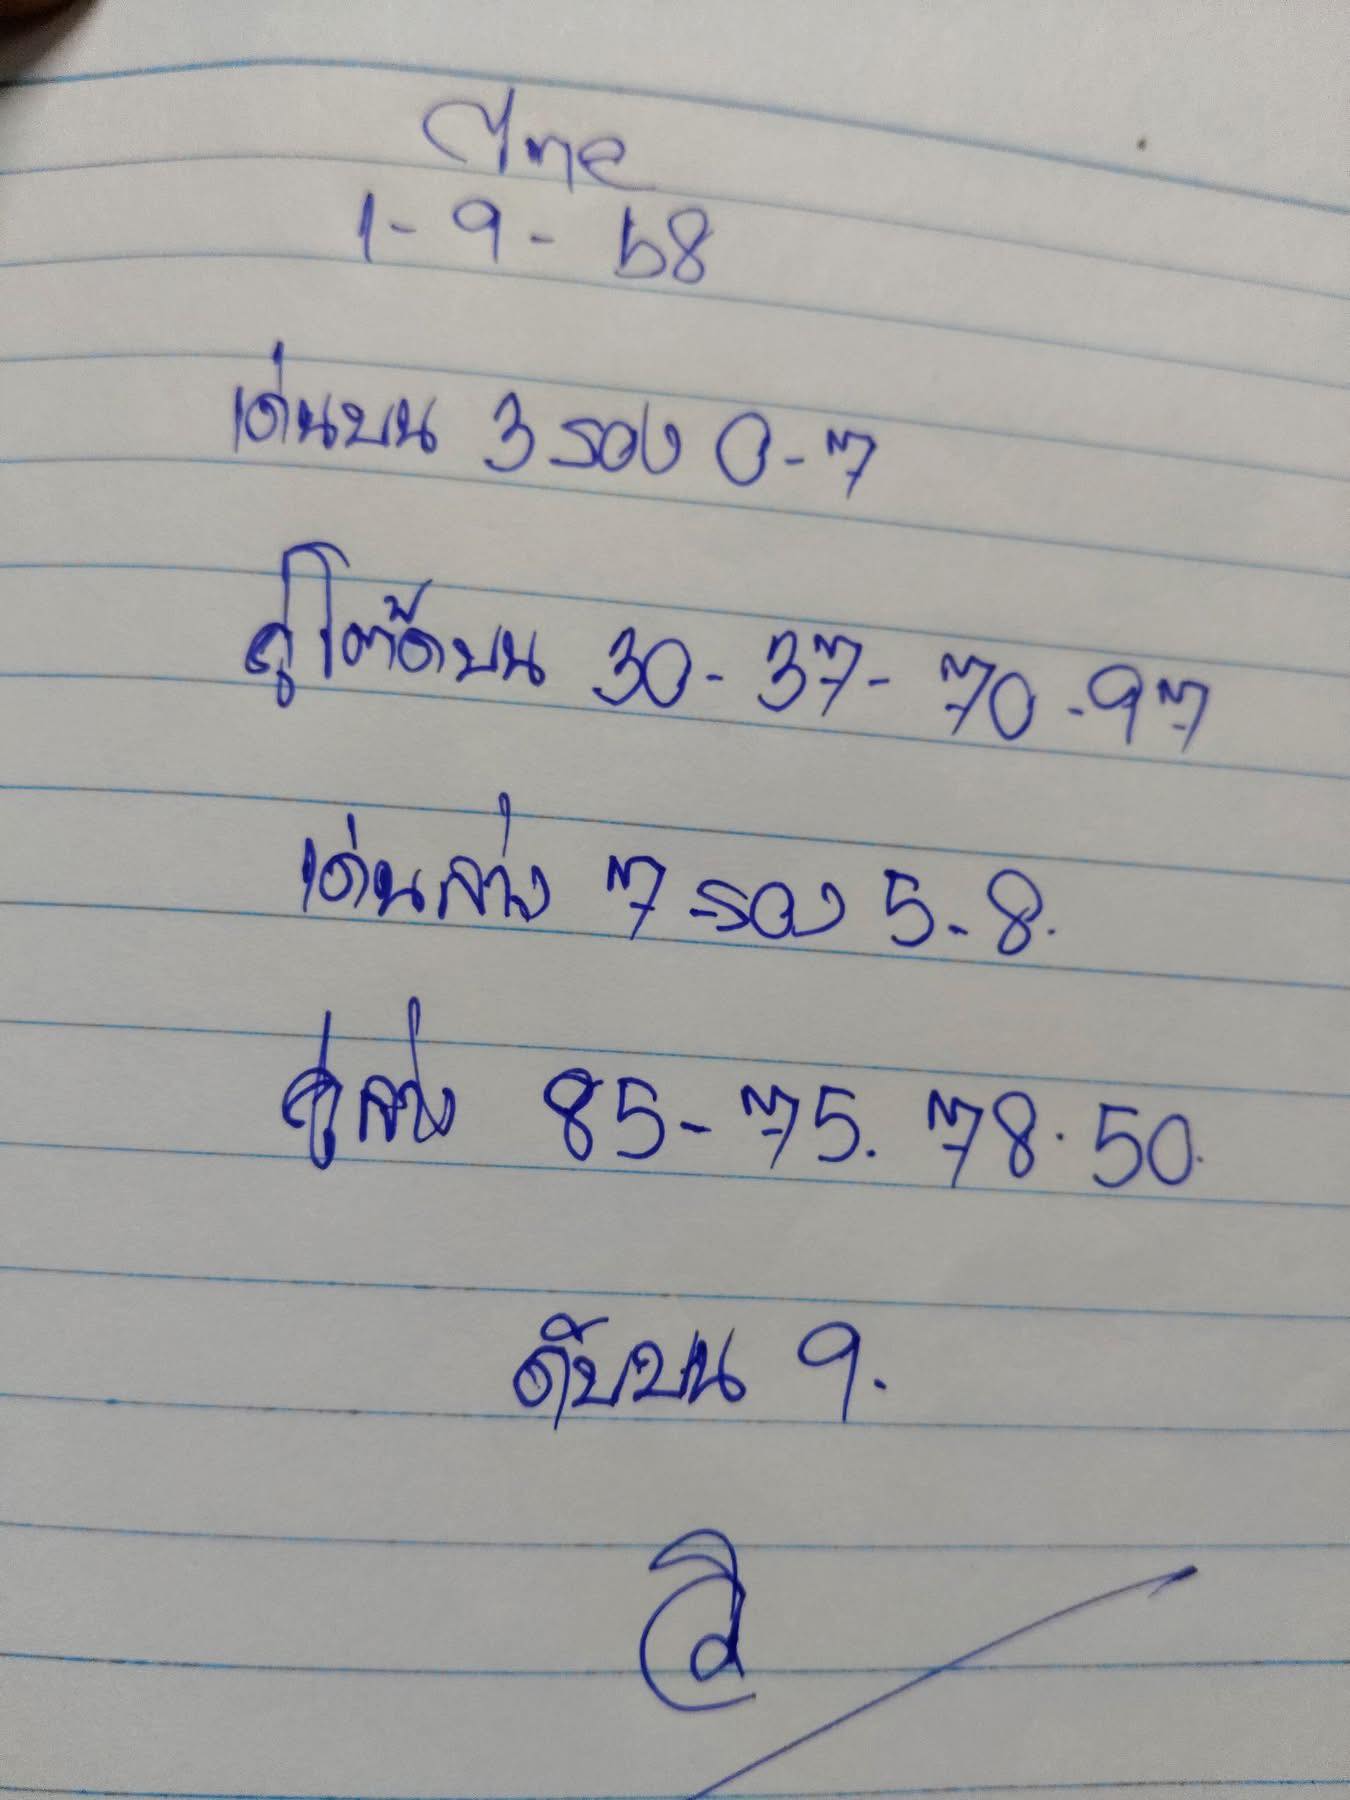 ไทย
1-9-68
เด่นบน 3 รอง 0-7
คู่โต๊ดบน 30-37-70-97
เด่นล่าง 7 รอง 5-8.
คู่ล่าง 85-75. 78. 50.
ดับบน 9.